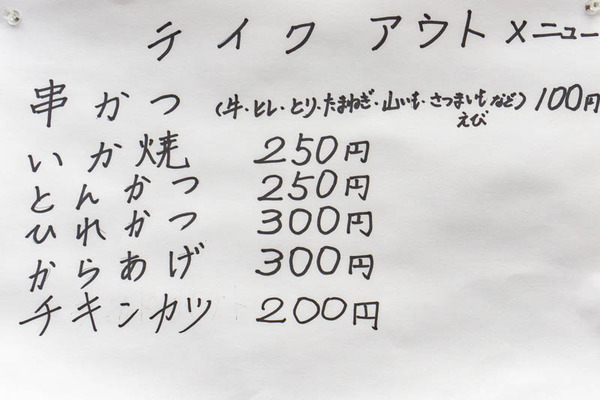 テイクアウトメニュー
串かつ（牛・ヒレ・とり・たまねぎ・山いも・さつまいも など）100円
えび
いか焼 250円
とんかつ 250円
ひれかつ 300円
からあげ 300円
チキンカツ 200円